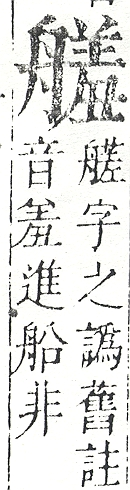 艖字之譌舊註
音羞進船非